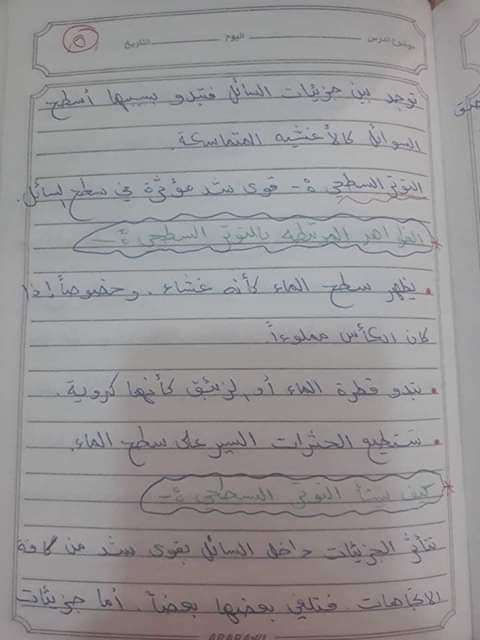 ٥
موضوع الدرس اليوم التاريخ
توجد بين جزيئات السائل فتبدو بسببها أسطح
السوائل كالأغشيه المتماسكة.
التوتر السطحي :- قوى شد مؤثرة في سطح السائل.
الظواهر المرتبطه بالتوتر السطحي :-
يظهر سطح الماء كأنه غشاء. وخصوصاً إذا
كان الكأس مملوءاً.
تبدو قطرة الماء أو الزئبق كأنها كروية.
تستطيع الحشرات السير على سطح الماء.
كيف ينشأ التوتر السطحي :-
تتأثر الجزيئات داخل السائل بقوى شد من كافة
الاتجاهات. فتلغي بعضها بعضاً. أما جزيئات